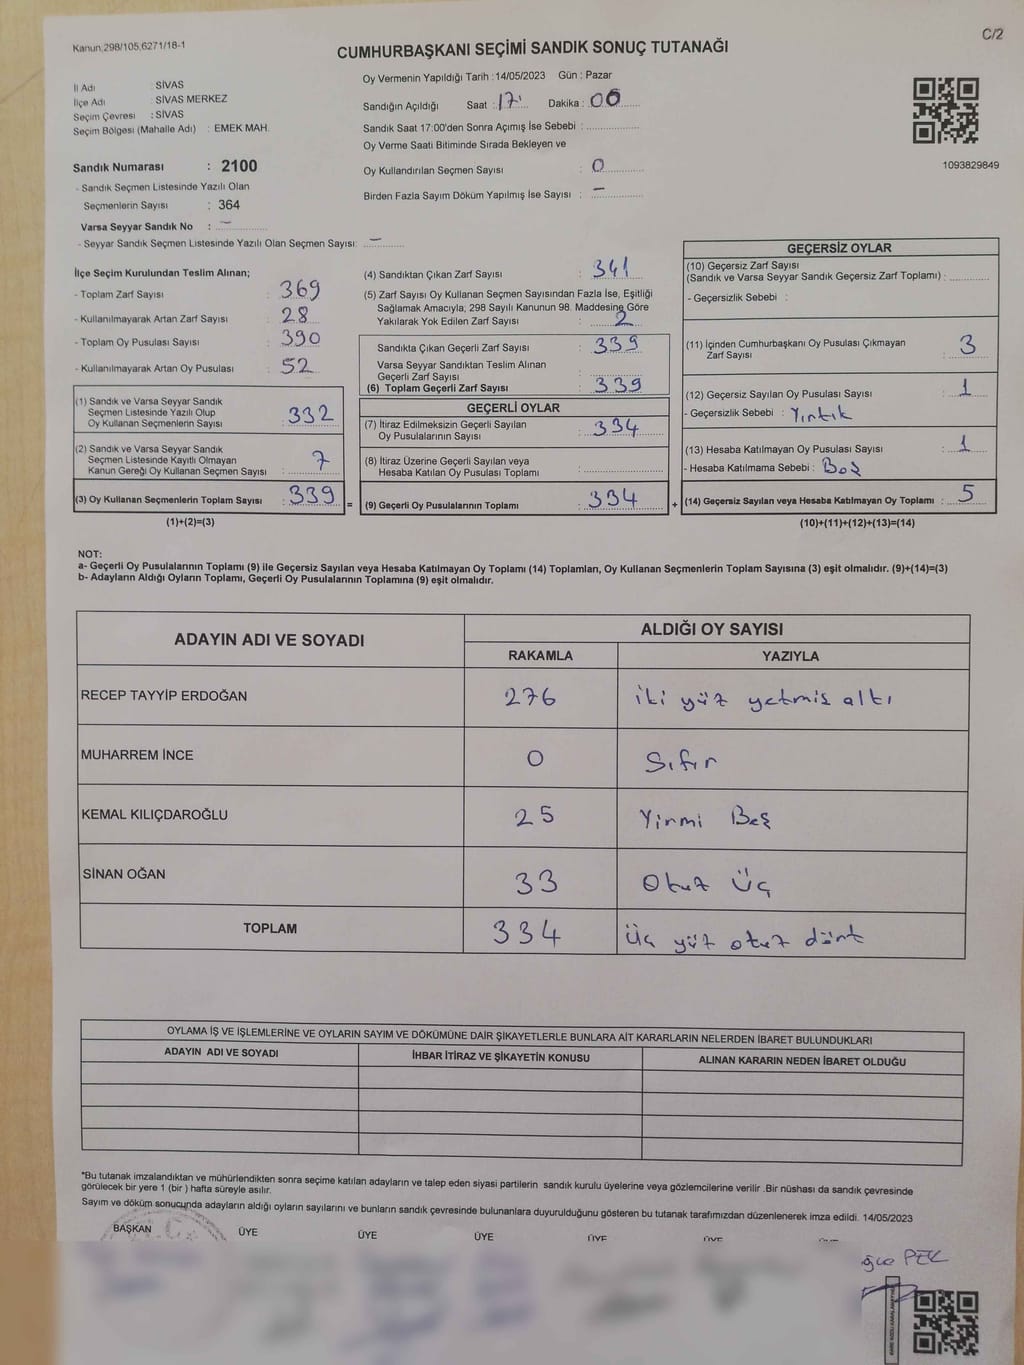 Kanun;298/105,6271/18-1
C/2
CUMHURBAŞKANI SEÇİMİ SANDIK SONUÇ TUTANAĞI
İl Adı SİVAS
İlçe Adı : SİVAS MERKEZ
Seçim Çevresi : SİVAS
Seçim Bölgesi (Mahalle Adı) : EMEK MAH.
Sandık Numarası : 2100
- Sandık Seçmen Listesinde Yazılı Olan
Seçmenlerin Sayısı : 364
Varsa Seyyar Sandık No : -
- Seyyar Sandık Seçmen Listesinde Yazılı Olan Seçmen Sayısı: -
Oy Vermenin Yapıldığı Tarih :14/05/2023 Gün : Pazar
Sandığın Açıldığı Saat : 17 Dakika : 00
Sandık Saat 17:00'den Sonra Açımış İse Sebebi :
Oy Verme Saati Bitiminde Sırada Bekleyen ve
Oy Kullandırılan Seçmen Sayısı : 0
Birden Fazla Sayım Döküm Yapılmış İse Sayısı : -
1093829849
İlçe Seçim Kurulundan Teslim Alınan;
- Toplam Zarf Sayısı : 369
- Kullanılmayarak Artan Zarf Sayısı : 28
- Toplam Oy Pusulası Sayısı : 390
- Kullanılmayarak Artan Oy Pusulası : 52
(1) Sandık ve Varsa Seyyar Sandık
Seçmen Listesinde Yazılı Olup
Oy Kullanan Seçmenlerin Sayısı : 332
(2) Sandık ve Varsa Seyyar Sandık
Seçmen Listesinde Kayıtlı Olmayan
Kanun Gereği Oy Kullanan Seçmen Sayısı : 7
(3) Oy Kullanan Seçmenlerin Toplam Sayısı : 339 =
(1)+(2)=(3)
(4) Sandıktan Çıkan Zarf Sayısı : 341
(5) Zarf Sayısı Oy Kullanan Seçmen Sayısından Fazla İse, Eşitliği
Sağlamak Amacıyla; 298 Sayılı Kanunun 98. Maddesine Göre
Yakılarak Yok Edilen Zarf Sayısı : 2
Sandıkta Çıkan Geçerli Zarf Sayısı : 339
Varsa Seyyar Sandıktan Teslim Alınan
Geçerli Zarf Sayısı :
(6) Toplam Geçerli Zarf Sayısı : 339
GEÇERLİ OYLAR
(7) İtiraz Edilmeksizin Geçerli Sayılan
Oy Pusulalarının Sayısı : 334
(8) İtiraz Üzerine Geçerli Sayılan veya
Hesaba Katılan Oy Pusulası Toplamı :
(9) Geçerli Oy Pusulalarının Toplamı : 334 +
GEÇERSİZ OYLAR
(10) Geçersiz Zarf Sayısı
(Sandık ve Varsa Seyyar Sandık Geçersiz Zarf Toplamı) :
- Geçersizlik Sebebi :
(11) İçinden Cumhurbaşkanı Oy Pusulası Çıkmayan
Zarf Sayısı : 3
(12) Geçersiz Sayılan Oy Pusulası Sayısı : 1
- Geçersizlik Sebebi : Yırtık
(13) Hesaba Katılmayan Oy Pusulası Sayısı : 1
- Hesaba Katılmama Sebebi : Boş
(14) Geçersiz Sayılan veya Hesaba Katılmayan Oy Toplamı : 5
(10)+(11)+(12)+(13)=(14)
NOT:
a- Geçerli Oy Pusulalarının Toplamı (9) ile Geçersiz Sayılan veya Hesaba Katılmayan Oy Toplamı (14) Toplamları, Oy Kullanan Seçmenlerin Toplam Sayısına (3) eşit olmalıdır. (9)+(14)=(3)
b- Adayların Aldığı Oyların Toplamı, Geçerli Oy Pusulalarının Toplamına (9) eşit olmalıdır.
ADAYIN ADI VE SOYADI ALDIĞI OY SAYISI
RAKAMLA YAZIYLA
RECEP TAYYİP ERDOĞAN 276 iki yüz yetmiş altı
MUHARREM İNCE 0 Sıfır
KEMAL KILIÇDAROĞLU 25 Yirmi Beş
SİNAN OĞAN 33 Otuz Üç
TOPLAM 334 Üç yüz otuz dört
OYLAMA İŞ VE İŞLEMLERİNE VE OYLARIN SAYIM VE DÖKÜMÜNE DAİR ŞİKAYETLERLE BUNLARA AİT KARARLARIN NELERDEN İBARET BULUNDUKLARI
ADAYIN ADI VE SOYADI İHBAR İTİRAZ VE ŞİKAYETİN KONUSU ALINAN KARARIN NEDEN İBARET OLDUĞU
*Bu tutanak imzalandıktan ve mühürlendikten sonra seçime katılan adayların ve talep eden siyasi partilerin sandık kurulu üyelerine veya gözlemcilerine verilir .Bir nüshası da sandık çevresinde
görülecek bir yere 1 (bir ) hafta süreyle asılır.
Sayım ve döküm sonucunda adayların aldığı oyların sayılarını ve bunların sandık çevresinde bulunanlara duyurulduğunu gösteren bu tutanak tarafımızdan düzenlenerek imza edildi. 14/05/2023
BAŞKAN ÜYE ÜYE ÜYE ÜYE ÜYE